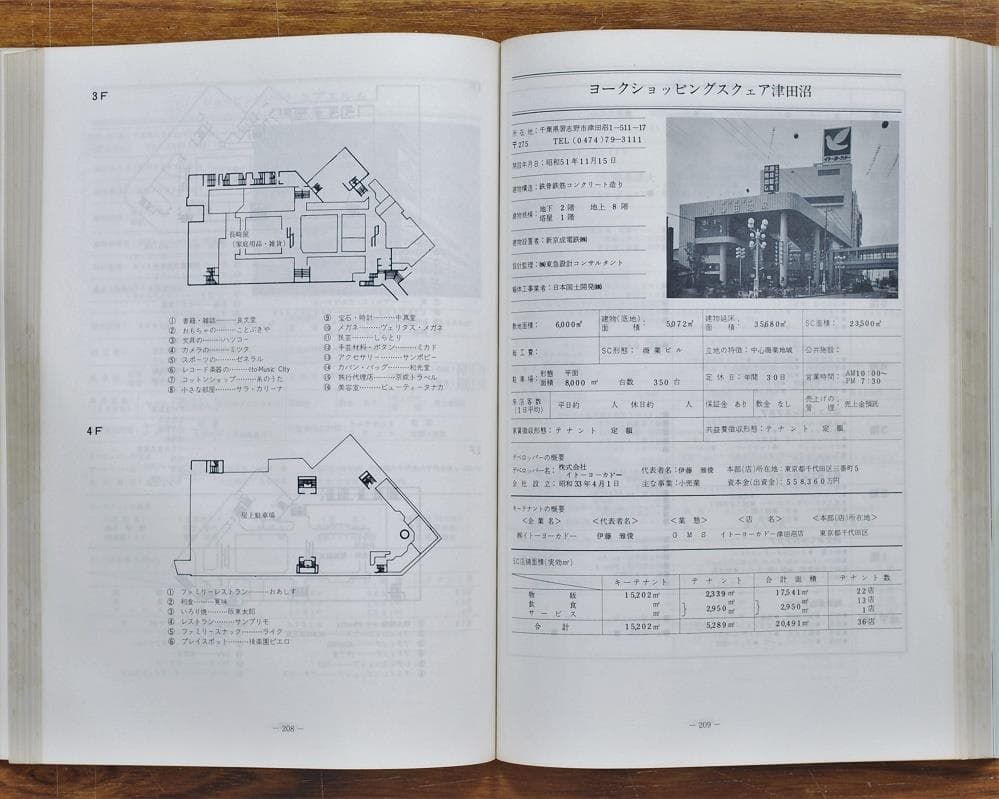 3F
長崎屋
(家庭用品・雑貨)
① 書籍・雑誌………良文堂
② おもちゃの………ことぶきや
③ 文具の………ハツコー
④ カメラの………ミツタ
⑤ スポーツの………ゼネラル
⑥ レコード楽器の………Itto Music City
⑦ コットンショップ………糸のうた
⑧ 小さな部屋………サラ・カリーナ
⑨ 宝石・時計………中真堂
⑩ メガネ………ヴェリタス・メガネ
⑪ 民芸………しらとり
⑫ 手芸材料・ボタン………ミカド
⑬ アクセサリー………サンポピー
⑭ カバン・バッグ………和光堂
⑮ 旅行代理店………京成トラベル
⑯ 美容室………ビューティータナカ
4F
屋上駐車場
① ファミリーレストラン………おあしす
② 和食………寛味
③ いろり焼………阪東太郎
④ レストラン………サンプリモ
⑤ ファミリースナック………ライク
⑥ プレイスポット………後楽園ピエロ
— 208 —
ヨークショッピングスクェア津田沼
所在地:千葉県習志野市津田沼1-511-17
〒275 TEL (0474)79-3111
開設年月日:昭和51年11月15日
建物構造:鉄骨鉄筋コンクリート造り
建物規模:地下 2階 地上 8階
塔屋 1階
建物設置者:新京成電鉄㈱
設計監理:㈱東急設計コンサルタント
躯体工事業者:日本国土開発㈱
イトーヨーカドー
敷地面積: 6,000㎡ 建物(底地)面積: 5,072㎡ 建物延床面積: 35,680㎡ SC面積: 23,500㎡
総工費: SC形態: 商業ビル 立地の特徴:中心商業地域 公共施設:
駐車場: 形態 平面 面積 8,000㎡ 台数 350台 定休日:年間 30日 営業時間: AM10:00~PM 7:30
来店客数(1日平均) 平日約 人 休日約 人 保証金 あり 敷金 なし 売上げの管理:売上金預託
家賃徴収形態:テナント 定額 共益費徴収形態:テナント 定額
デベロッパーの概要
デベロッパー名:株式会社イトーヨーカドー 代表者名:伊藤 雅俊 本部(店)所在地:東京都千代田区三番町5
会社設立:昭和33年4月1日 主な事業:小売業 資本金(出資金):558,360万円
キーテナントの概要
<企業名> <代表者名> <業態> <店名> <本部(店)所在地>
㈱イトーヨーカドー 伊藤 雅俊 GMS イトーヨーカドー津田沼店 東京都千代田区
SC店舗面積(実効㎡)
キーテナント テナント 合計面積 テナント数
物販 15,202㎡ 2,339㎡ 17,541㎡ 22店
飲食 ㎡ } 2,950㎡ } 2,950㎡ 13店
サービス ㎡ 1店
合計 15,202㎡ 5,289㎡ 20,491㎡ 36店
— 209 —